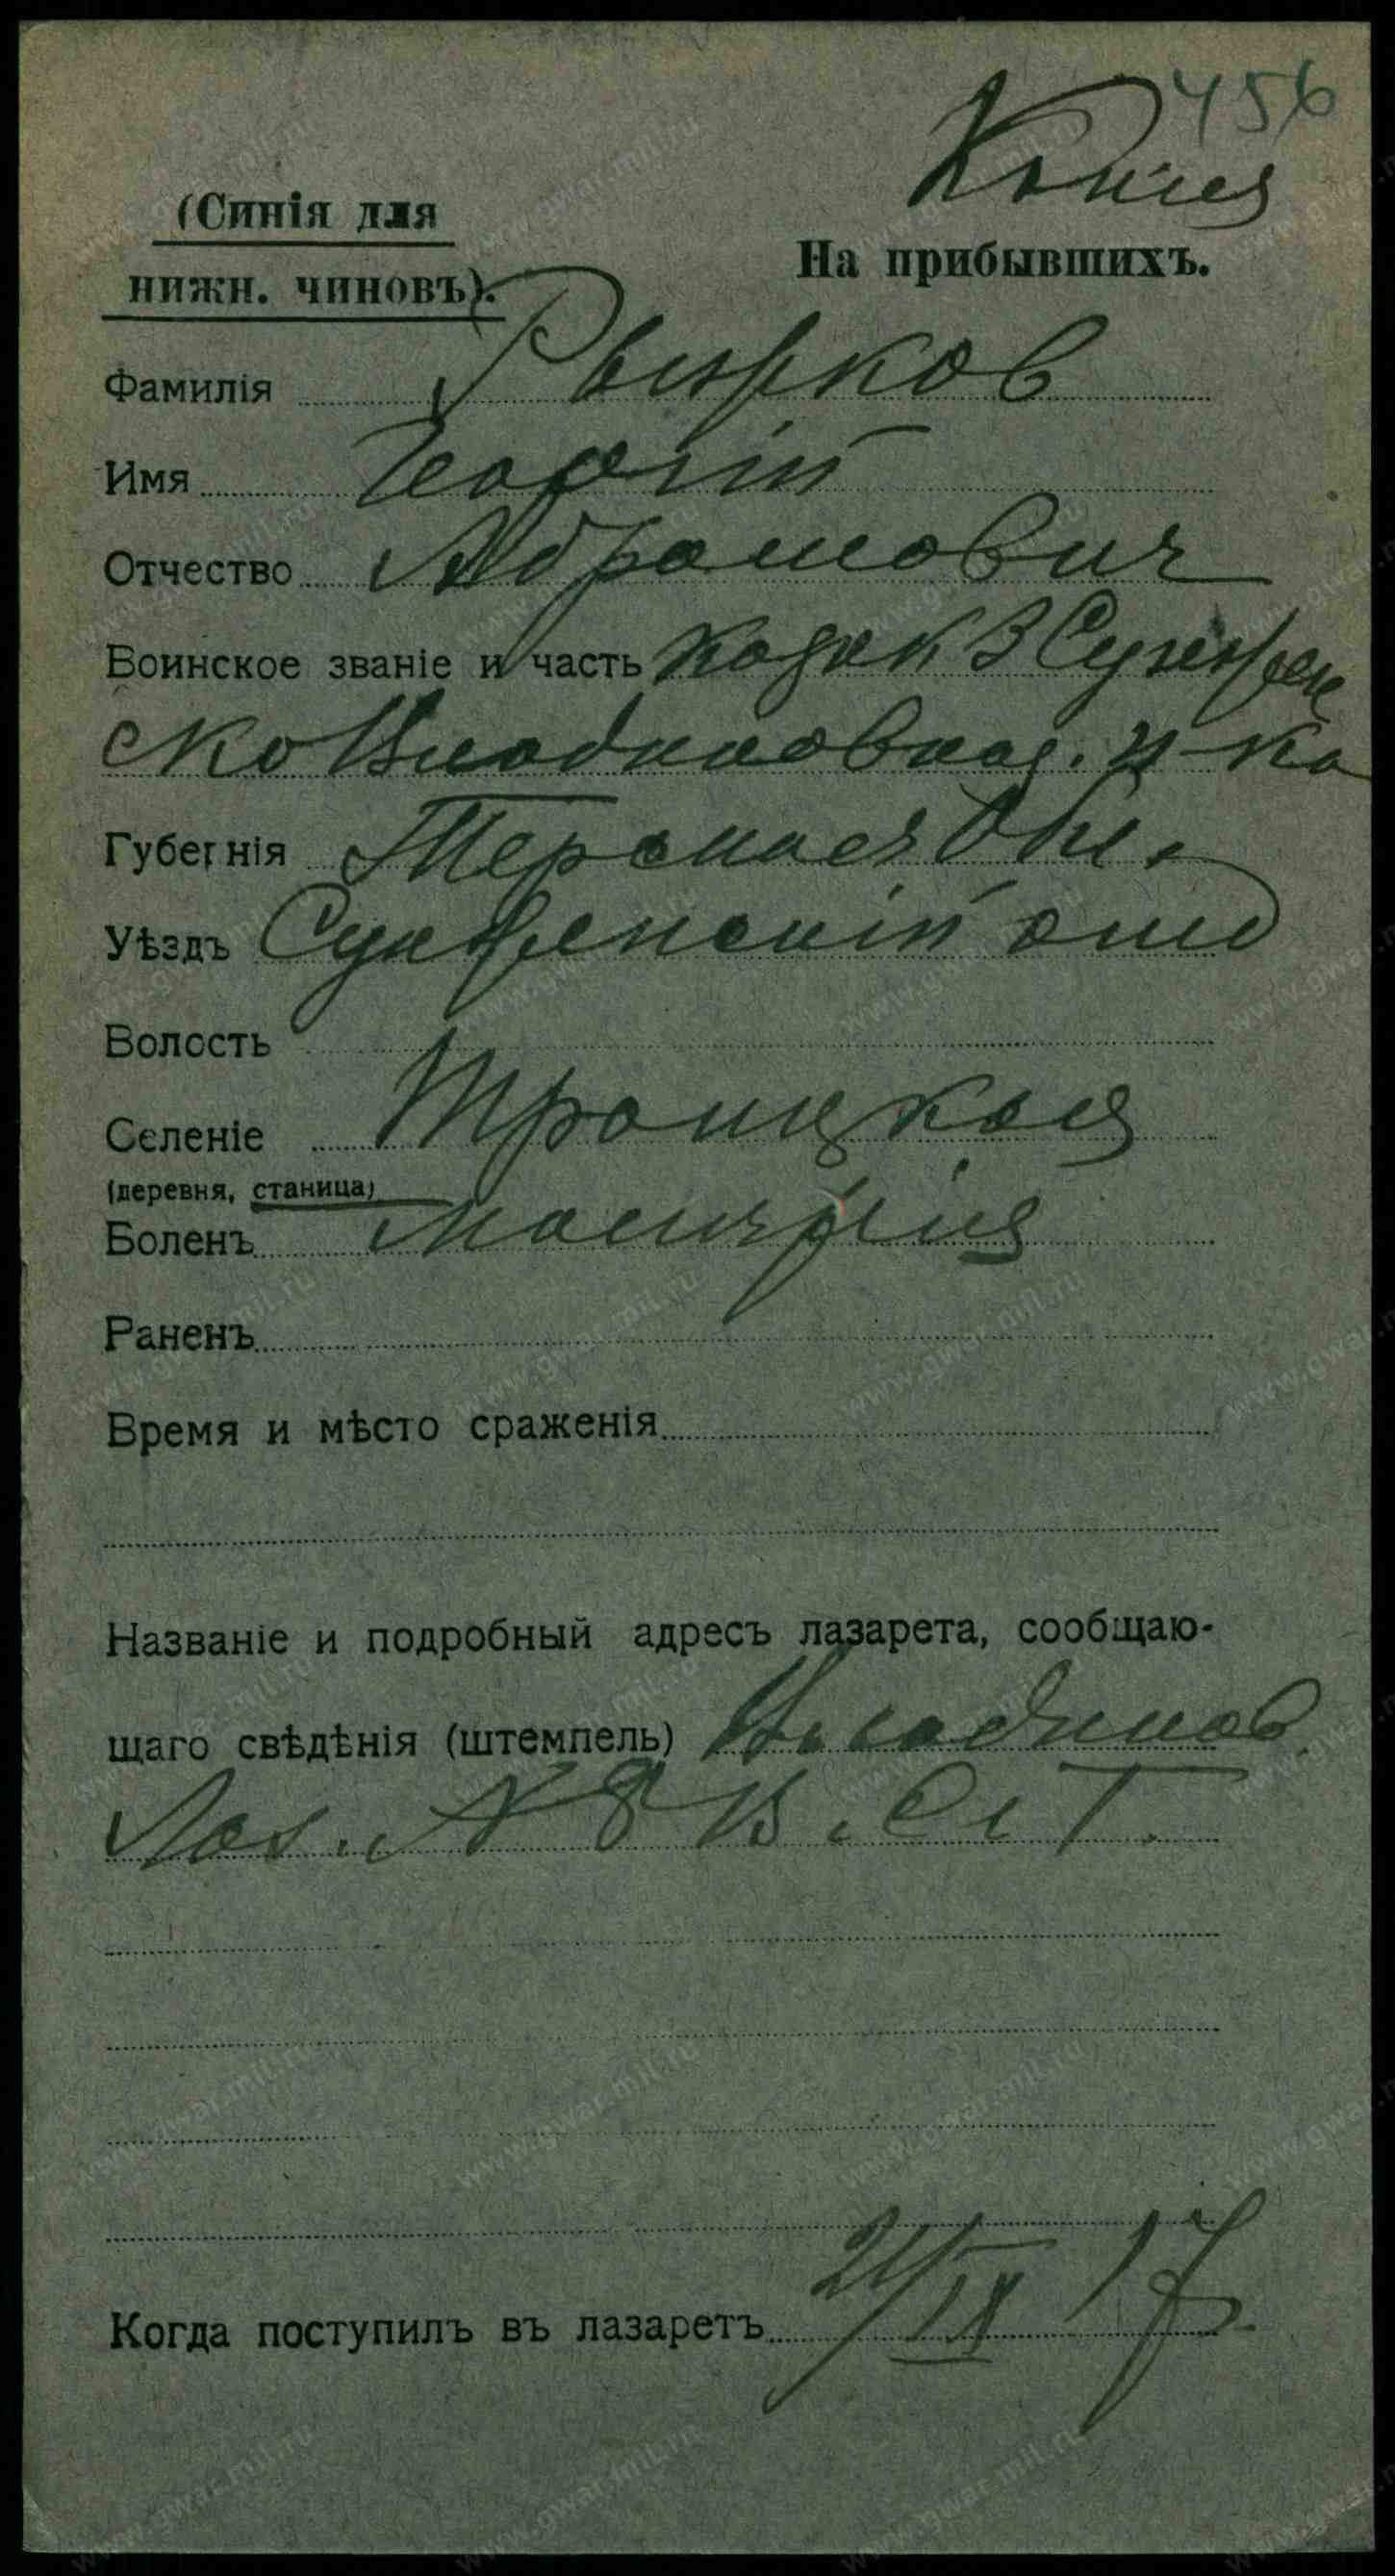 456
Копия
(Синія для
нижн. чиновъ).
На прибывшихъ.
Фамилія Рыжков
Имя Георгій
Отчество Абрамович
Воинское званіе и часть Козак 3 Сунжен
ско Владикавказ. п-ка
Губернія Терская Обл.
Уѣздъ Сунженскій отд
Волость
Селеніе Троицкая
(деревня, станица)
Боленъ Малярія
Раненъ
Время и мѣсто сраженія
Названіе и подробный адресъ лазарета, сообщаю-
щаго свѣдѣнія (штемпель) Владикав.
Лаз. № 8 В. С. Г.
Когда поступилъ въ лазаретъ 21/IX 17